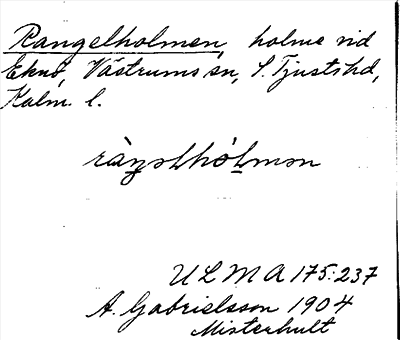 Rangelholmen, holme vid
Eknö, Västrums sn, S. Tjusts hd,
Kalm. l.
ràŋəlhólmən
ULMA 175:237
A. Gabrielsson 1904
Misterhult